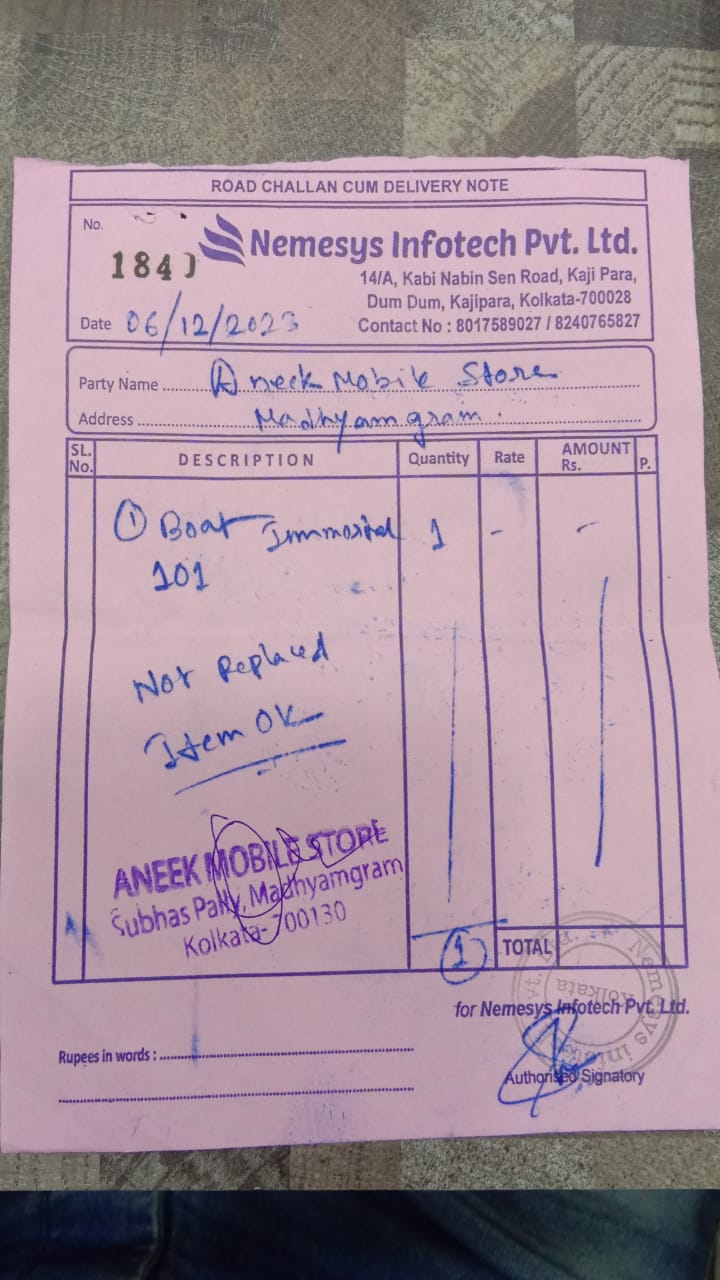 ROAD CHALLAN CUM DELIVERY NOTE
No.
184
Nemesys Infotech Pvt. Ltd.
14/A, Kabi Nabin Sen Road, Kaji Para,
Dum Dum, Kajipara, Kolkata-700028
Contact No : 8017589027 / 8240765827
Date 06/12/2023
Party Name Aneek Mobile Store
Address Madhyamgram.
SL. No. DESCRIPTION Quantity Rate AMOUNT Rs. P.
① Boat Immortal 1 - -
101
Not Replaced
Item OK
ANEEK MOBILE STORE
Subhas Pally, Madhyamgram
Kolkata-700130
1 TOTAL
Nemesys Infotech Pvt. Ltd.
Kolkata
for Nemesys Infotech Pvt. Ltd.
Rupees in words :
Authorised Signatory